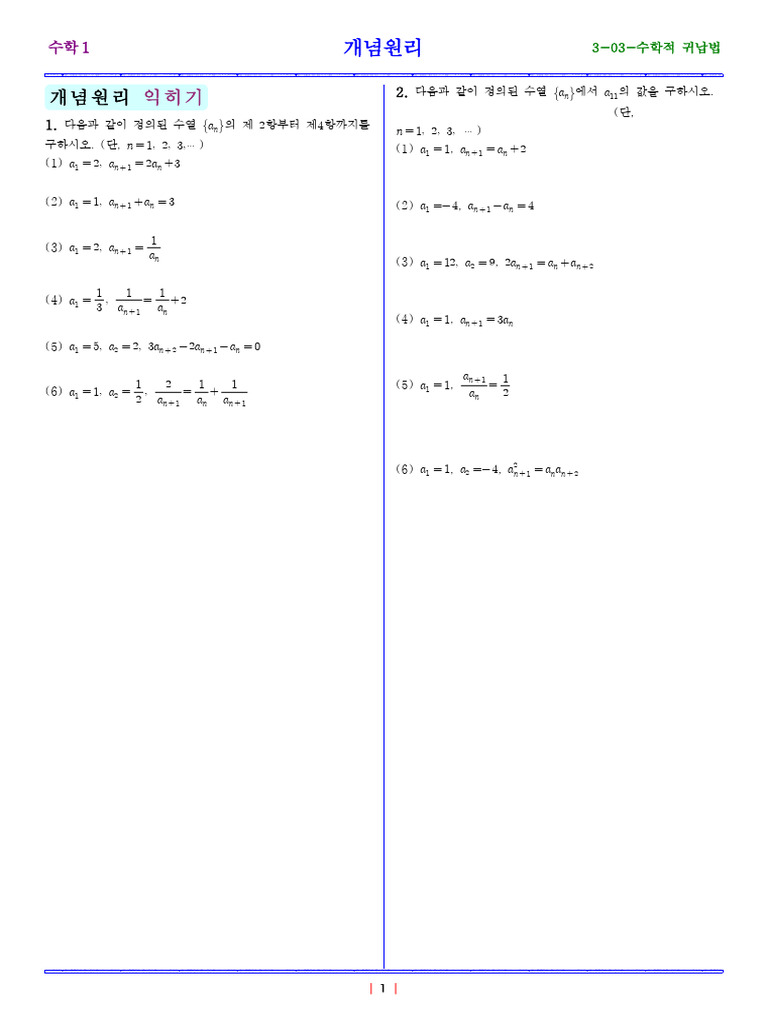 수학 1
개념원리
3-03-수학적 귀납법
개념원리 익히기
1. 다음과 같이 정의된 수열 {aₙ}의 제 2항부터 제4항까지를
구하시오. (단, n=1, 2, 3,⋯ )
(1) a₁=2, aₙ₊₁=2aₙ+3
(2) a₁=1, aₙ₊₁+aₙ=3
(3) a₁=2, aₙ₊₁=1/aₙ
(4) a₁=1/3, 1/aₙ₊₁=1/aₙ+2
(5) a₁=5, a₂=2, 3aₙ₊₂-2aₙ₊₁-aₙ=0
(6) a₁=1, a₂=1/2, 2/aₙ₊₁=1/aₙ+1/aₙ₊₁
2. 다음과 같이 정의된 수열 {aₙ}에서 a₁₁의 값을 구하시오.
(단,
n=1, 2, 3, ⋯ )
(1) a₁=1, aₙ₊₁=aₙ+2
(2) a₁=-4, aₙ₊₁-aₙ=4
(3) a₁=12, a₂=9, 2aₙ₊₁=aₙ+aₙ₊₂
(4) a₁=1, aₙ₊₁=3aₙ
(5) a₁=1, aₙ₊₁/aₙ=1/2
(6) a₁=1, a₂=-4, a²ₙ₊₁=aₙaₙ₊₂
| 1 |